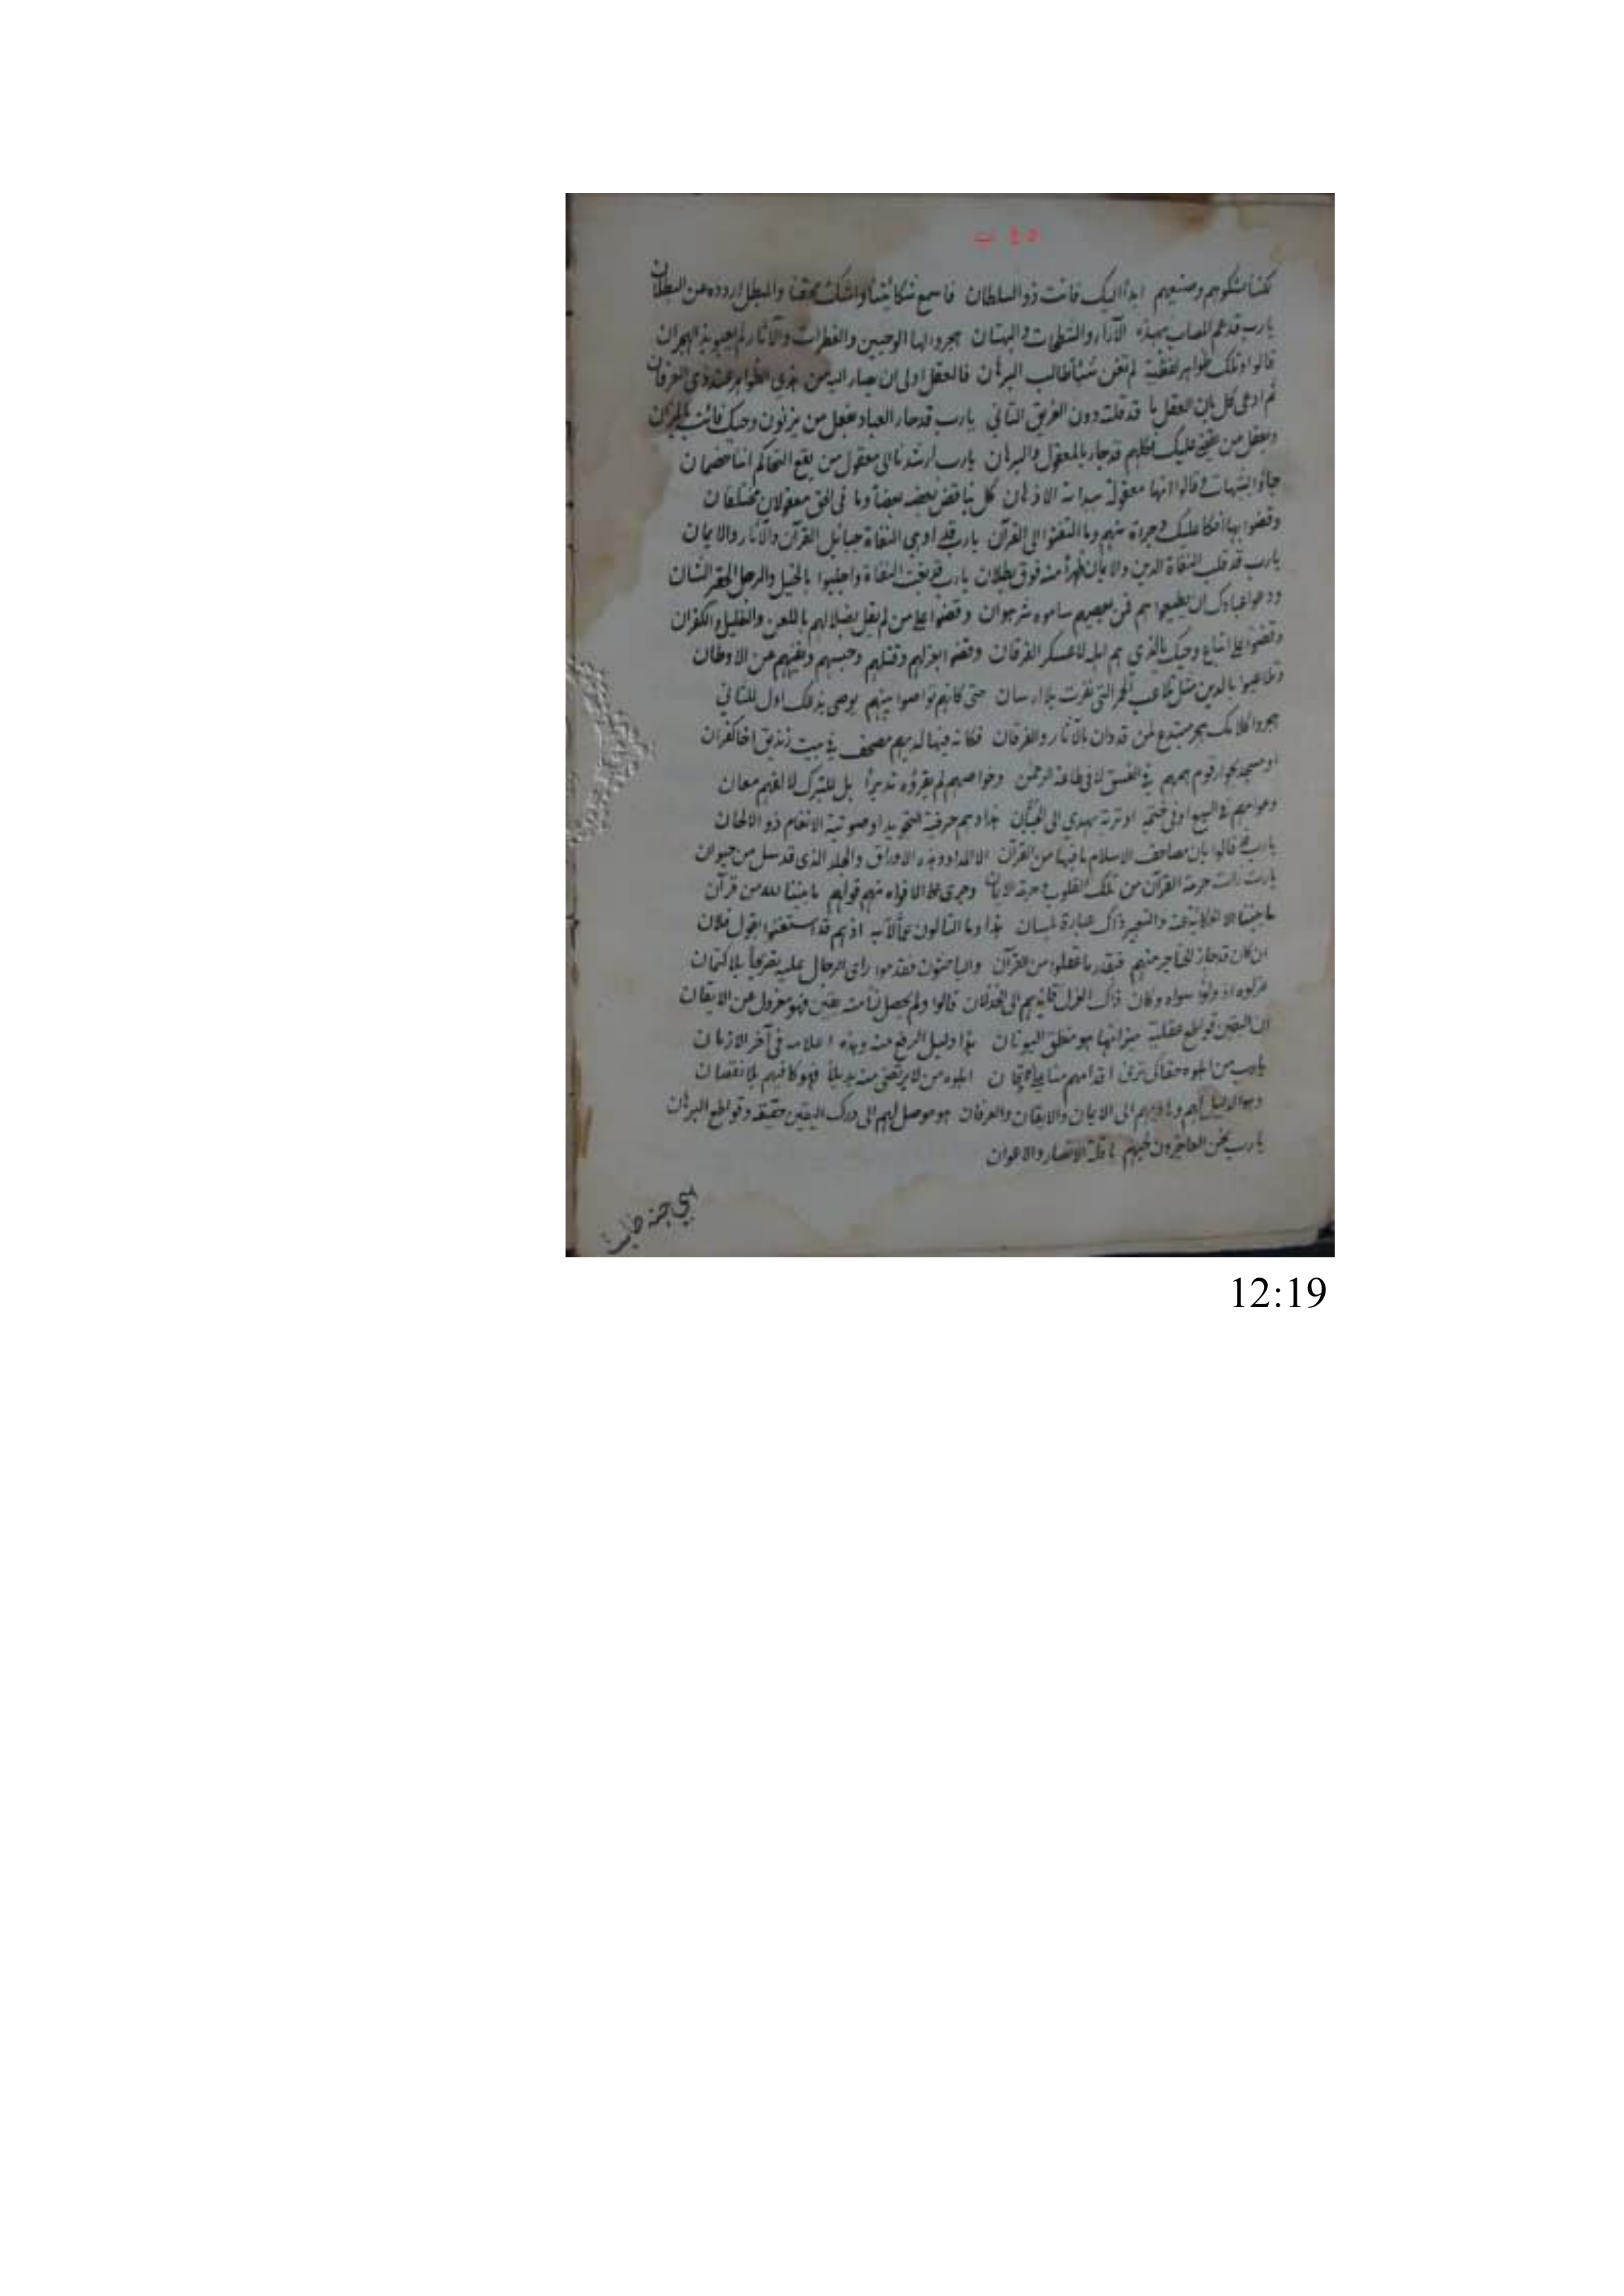 ٤٥ ب
لكننا نشكوهم وصنيعهم ابدا اليك فانت ذو السلطان فاسمع شكايتنا واشك محقنا والمبطل اردده عن البطلان
يارب قد عم المصاب بهذه الآراء والشطحات والبهتان هجروا لها الوحيين والفطرات والآثار لم يعبوا بذا الهجران
قالوا وتلك ظواهر لفظية لم تغن شيئا طالب البرهان فالعقل اولى ان يصار اليه من هذي الظواهر عند ذي العرفان
ثم ادعى كل بان العقل ما قد قلته دون الفريق الثاني يارب قد حار العباد بعقل من يزنون وحيك فائت بالميزان
وبعقل من يقضى عليك فكلهم قد جاء بالمعقول والبرهان يارب ارشدنا الى معقول من يقع التحاكم اننا خصمان
جاؤا بشبهات وقالوا انها معقولة ببدائه الاذهان كل يناقض بعضه بعضا وما في الحق معقولان مختلفان
وقضوا بها افكا عليك وجراة منهم وما التفتوا الى القرآن يارب قد اوهى النفاة حبايل القرآن والآثار والايمان
يارب قد قلب النفاة الدين والايمان ظهرا منه فوق بطان يارب قد بغت النفاة واجلبوا بالخيل والرجل الحقير الشان
ودعوا عبادك ان يطيعوا هم فمن يعصيهم ساموه شر هوان وقضوا على من لم يقل بضلالهم باللعن والتضليل والكفران
وقضوا على اتباع وحيك بالذي هم اهله لا عسكر الفرقان وقضوا بعزلهم وقتلهم وحبسهم ونفيهم عن الاوطان
وتلاعبوا بالدين مثل تلاعب الحمر التي نفرت بلا ارسان حتى كانهم تواصوا بينهم يوصي بذلك اول للثاني
هجروا كلامك هجر مبتدع لمن قد دان بالآثار والفرقان فكانه فيما لديهم مصحف في بيت زنديق اخا كفران
او مسجد بجوار قوم همهم في الفسق لا في طاعة الرحمن وخواصهم لم يقرؤه تدبرا بل للتبرك لا لفهم معان
وعوامهم في السبع او في ختمة او تربة يهدي الى الجبان هذا وهم حرفية التجويد او صوتية الانغام ذو الالحان
يارب قد قالوا بان مصاحف الاسلام ما فيها من القرآن الا المداد وهذه الاوراق والجلد الذي قد سل من حيوان
يارب زالت حرمة القرآن من تلك القلوب وحرمة الايمان وجرى على الافواه منهم قولهم ما بيننا لله من قرآن
ما بيننا الا الحكاية عنه والتعبير ذاك عبارة بلسان هذا وما التالون عمالا به اذ هم قد استغنوا بقول فلان
ان كان قد جاز الحناجر منهم فبقدر ما عقلوا من القرآن والباحثون فقدموا راى الرجال عليه تصريحا بلا كتمان
عزلوه اذ ولوا سواه وكان ذاك العزل قائدهم الى الخذلان قالوا ولم يحصل لنا منه يقين فهو معزول عن الايقان
ان اليقين قواطع عقلية ميزانها هو منطق اليونان هذا دليل الرفع منه وهذه اعلامه في آخر الازمان
يارب من اهلوه حقا كى ترى اقدامهم منا على الاجفان اهلوه من لا يرتضى منه بديلا فهو كافيهم بلا نقصان
وهو الدليل لهم وهاديهم الى الايمان والايقان والعرفان هو موصل لهم الى درك اليقين حقيقة وقواطع البرهان
يارب نحن العاجزون بحبهم يا قلة الانصار والاعوان
12:19